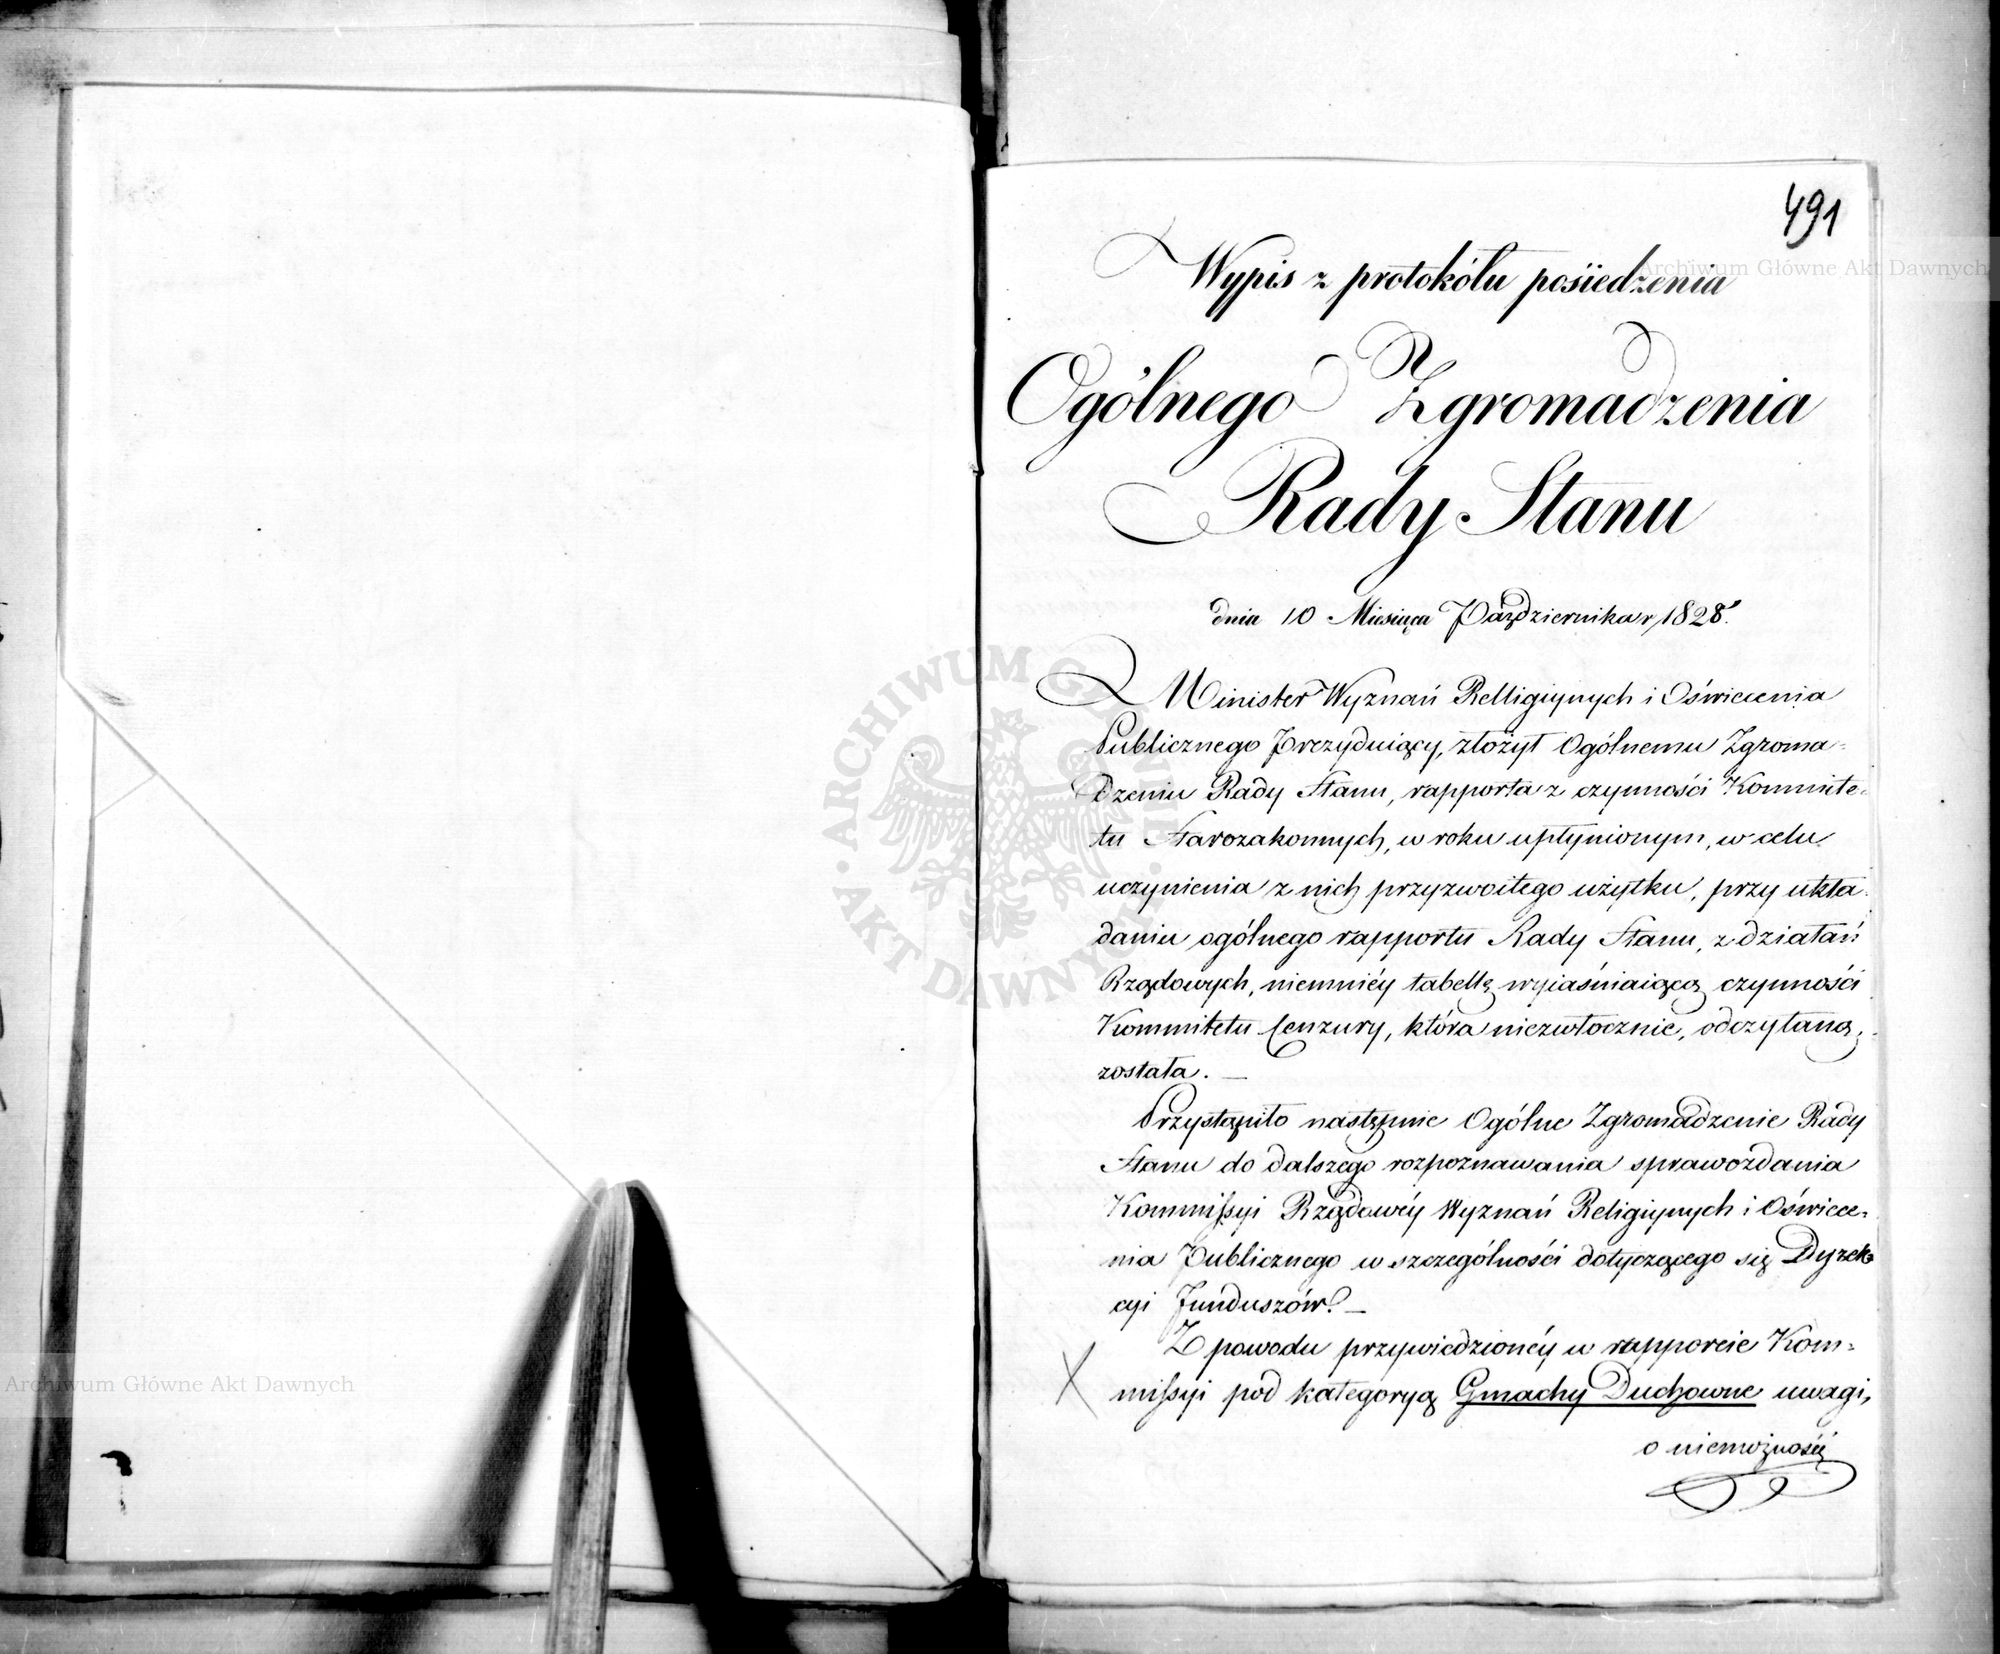 491
Wypis z protokółu posiedzenia
Ogólnego Zgromadzenia
Rady Stanu
dnia 10 Miesiąca Października r. 1828.
Minister Wyznań Relligiynych i Oświecenia
Publicznego Prezyduiący, złożył Ogólnemu Zgroma=
dzeniu Rady Stanu, rapporta z czynności Kommite=
tu Starozakonnych, w roku upłynionym, w celu
uczynienia z nich przyzwoitego użytku, przy ukła=
daniu ogólnego rapportu Rady Stanu, z działań
Rządowych, niemniéy tabellę wyiaśniaiącą czynności
Kommitetu Cenzury, która niezwłocznie, odczytaną
została. —
Przystąpiło następnie Ogólne Zgromadzenie Rady
Stanu do dalszego rozpoznawania sprawozdania
Kommissyi Rządowéy Wyznań Religiynych i Oświece=
nia Publicznego w szczególności dotyczącego się Dyrek=
cyi Funduszów. —
Z powodu przywiedzionéy w rapporcie Kom=
missyi pod kategoryą Gmachy Duchowne uwagi,
o niemożności
Archiwum Główne Akt Dawnych
Archiwum Główne Akt Dawnych
ARCHIWUM GŁÓWNE AKT DAWNYCH